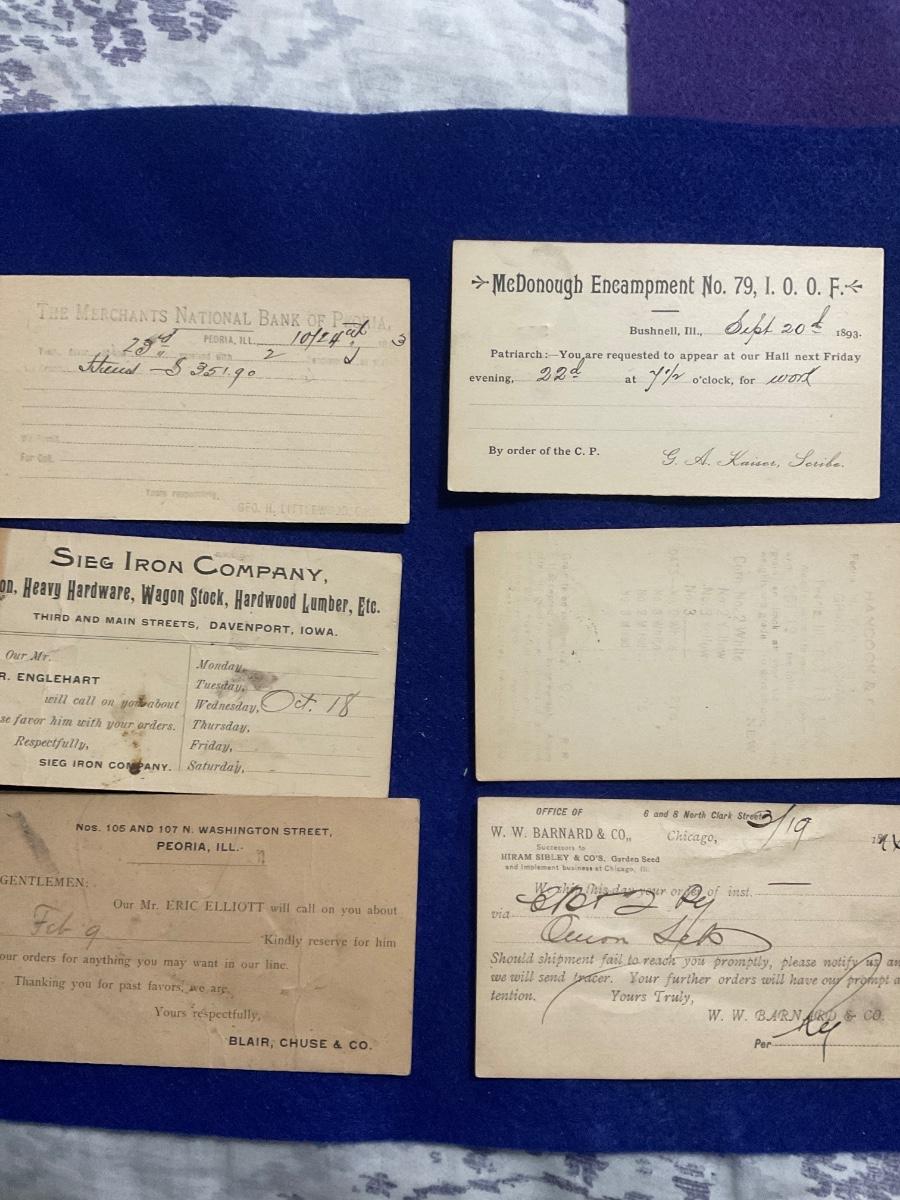 THE MERCHANTS NATIONAL BANK OF PEORIA,
PEORIA, ILL. 10/24 3
23d 2
$351.90
For Col.
Yours respectfully,
GEO. H. LITTLEWOOD
McDonough Encampment No. 79, I. O. O. F.
Bushnell, Ill., Sept 20d 1893.
Patriarch:—You are requested to appear at our Hall next Friday
evening, 22d at 7½ o'clock, for work
By order of the C. P. G. A. Kaiser, Scribe.
SIEG IRON COMPANY,
on, Heavy Hardware, Wagon Stock, Hardwood Lumber, Etc.
THIRD AND MAIN STREETS, DAVENPORT, IOWA.
Our Mr.
R. ENGLEHART
will call on you about
se favor him with your orders.
Respectfully,
SIEG IRON COMPANY.
Monday,
Tuesday,
Wednesday, Oct. 18
Thursday,
Friday,
Saturday,
Nos. 105 AND 107 N. WASHINGTON STREET,
PEORIA, ILL.
GENTLEMEN:
Our Mr. ERIC ELLIOTT will call on you about
Feb 9 Kindly reserve for him
our orders for anything you may want in our line.
Thanking you for past favors, we are,
Yours respectfully,
BLAIR, CHUSE & CO.
OFFICE OF 6 and 8 North Clark Street
W. W. BARNARD & CO., Chicago, 3/19
Successors to
HIRAM SIBLEY & CO'S. Garden Seed
and Implement business at Chicago, Ill.
We ship this day your order of inst.
via
Onion Sets
Should shipment fail to reach you promptly, please notify us an
we will send tracer. Your further orders will have our prompt a
tention. Yours Truly,
W. W. BARNARD & CO.
Per